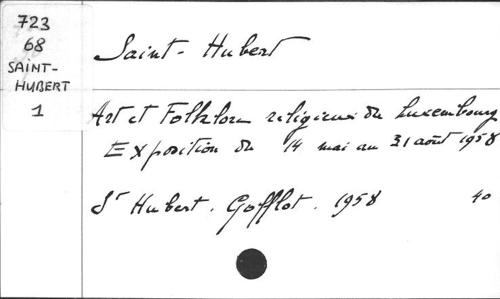 723
68
SAINT-
HUBERT
1
Saint-Hubert
Art et Folklore religieux du Luxembourg
Exposition du 14 mai au 31 août 1958
St Hubert. Gofflot. 1958 40